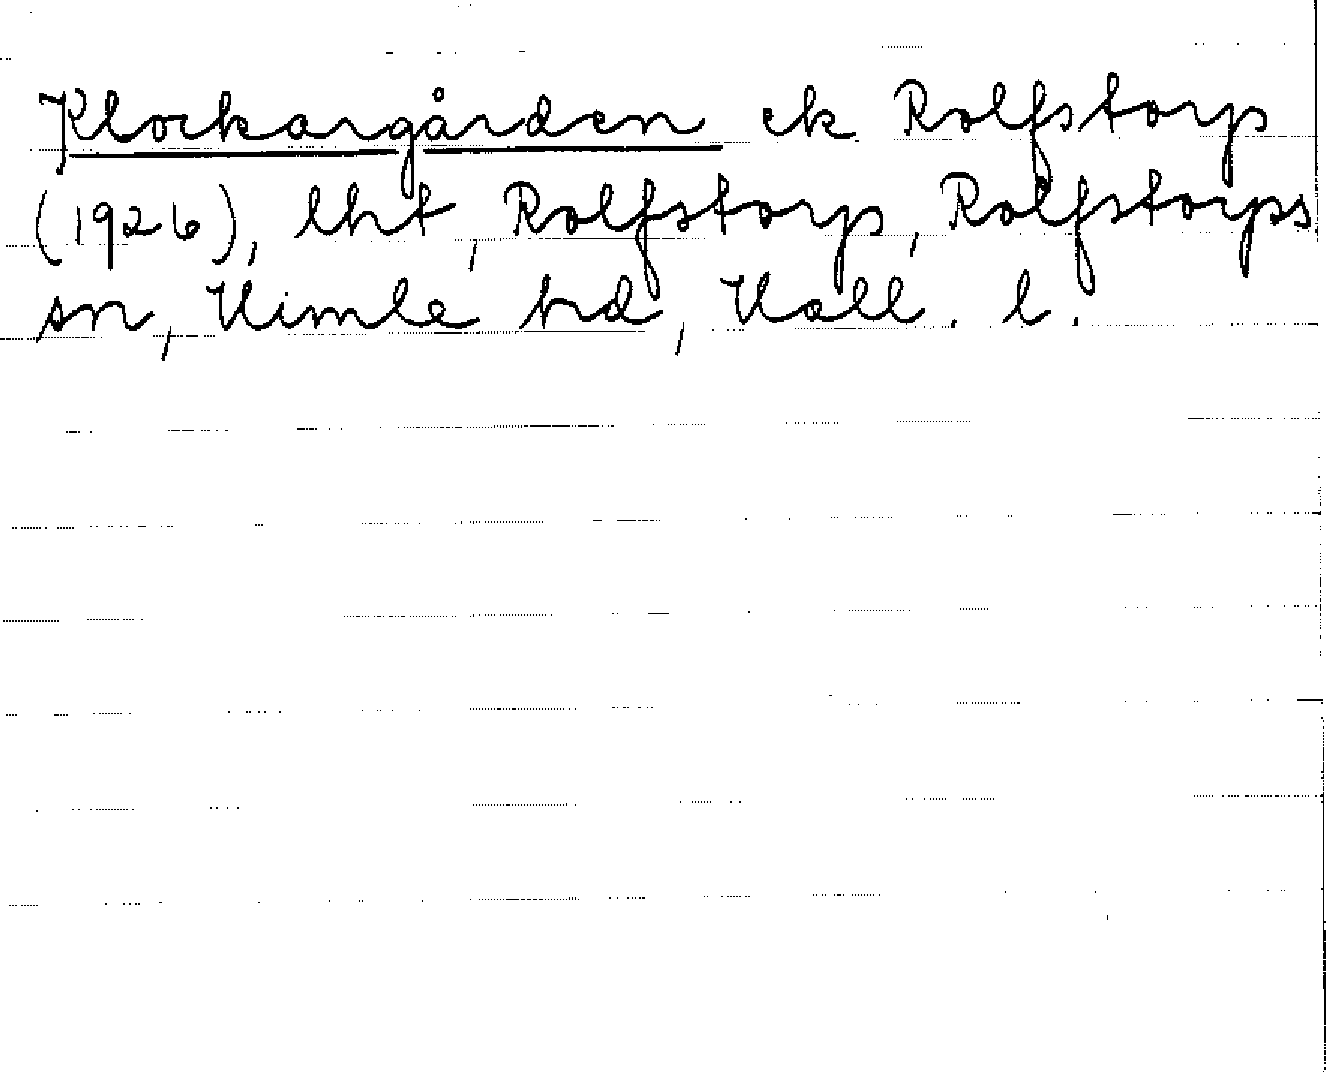 Klockargården ek Rolfstorp
(1926), lht, Rolfstorp, Rolfstorps
sn, Himle hd, Hall. l.